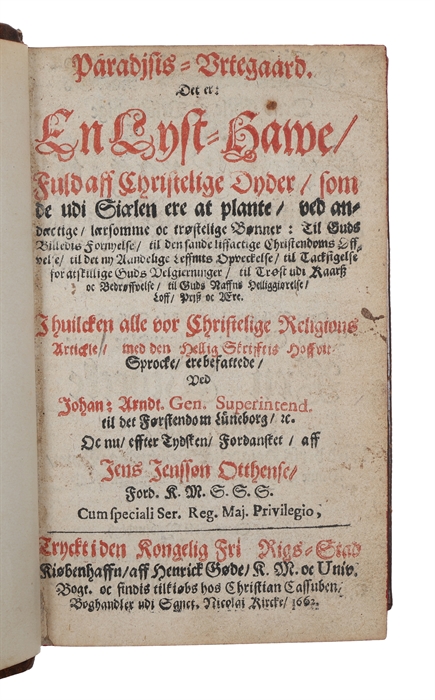 Paradjsis-Vrtegaard.
Det er:
En Lyst-Hawe/
Fuld aff Christelige Dyder/ som
de udi Siælen ere at plante/ ved an-
dæctige/ lærsomme oc trøstelige Bønner: Til Guds
Billedis Fornyelse/ til den sande liffactige Christendoms Øff-
velse/ til det ny Aandelige Leffnits Opveckelse/ til Tacksigelse
for atskillige Guds Velgierninger/ til Trøst udi Kaarß
oc Bedrøffvelse/ til Guds Naffns Helliggiørelse/
Loff/ Prjß oc Ære.
J huilcken alle vor Christelige Religions
Artickle/ med den Hellig Skrifftis Hoffvit/
Sprocke/ ere befattede/
Ved
Johan: Arndt. Gen. Superintend.
til det Førstendom Lüneborg/ &c.
Oc nu/ effter Tydsken/ Fordansket/ aff
Jens Jenssøn Otthense/
Ford. K. M. S. S. S.
Cum speciali Ser. Reg. Maj. Privilegio,
Tryckt i den Kongelig Fri Rigs-Stad
Kiøbenhaffn/ aff Henrick Gøde/ K. M. oc Univ.
Bogt. oc findis til kiøbs hos Christian Cassuben/
Boghandler udi Sanct. Nicolai Kircke/